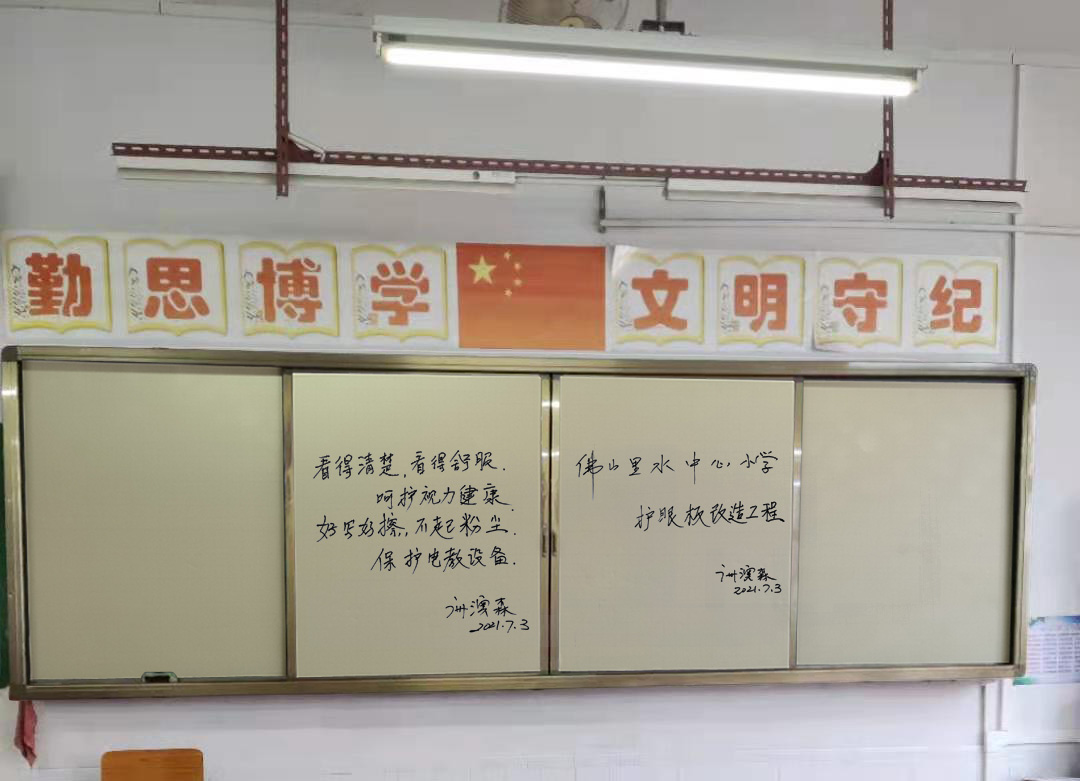 勤思博学 文明守纪
看得清楚,看得舒服.
呵护视力健康.
好写好擦,不起粉尘.
保护电教设备.
2021.7.3
佛山里水中心小学
护眼板改造工程
2021.7.3